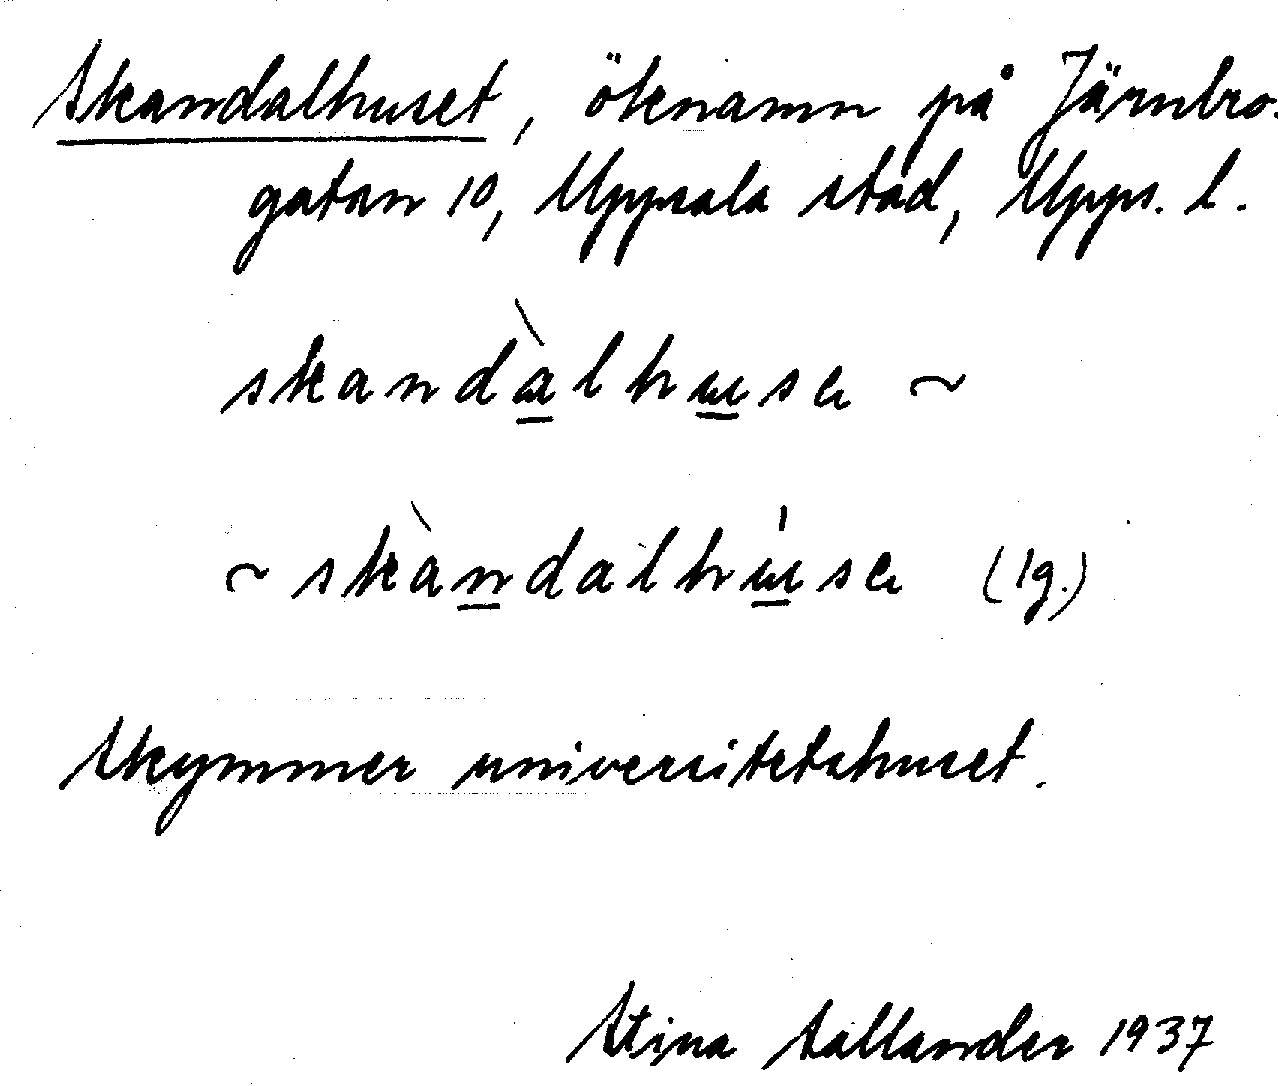 Skandalhuset, öknamn på Järnbro-
gatan 10, Uppsala stad, Upps. l.
skandàlhuse ~
~ skàndalhúse (lg.)
Skymmer universitetshuset.
Stina Sallander 1937